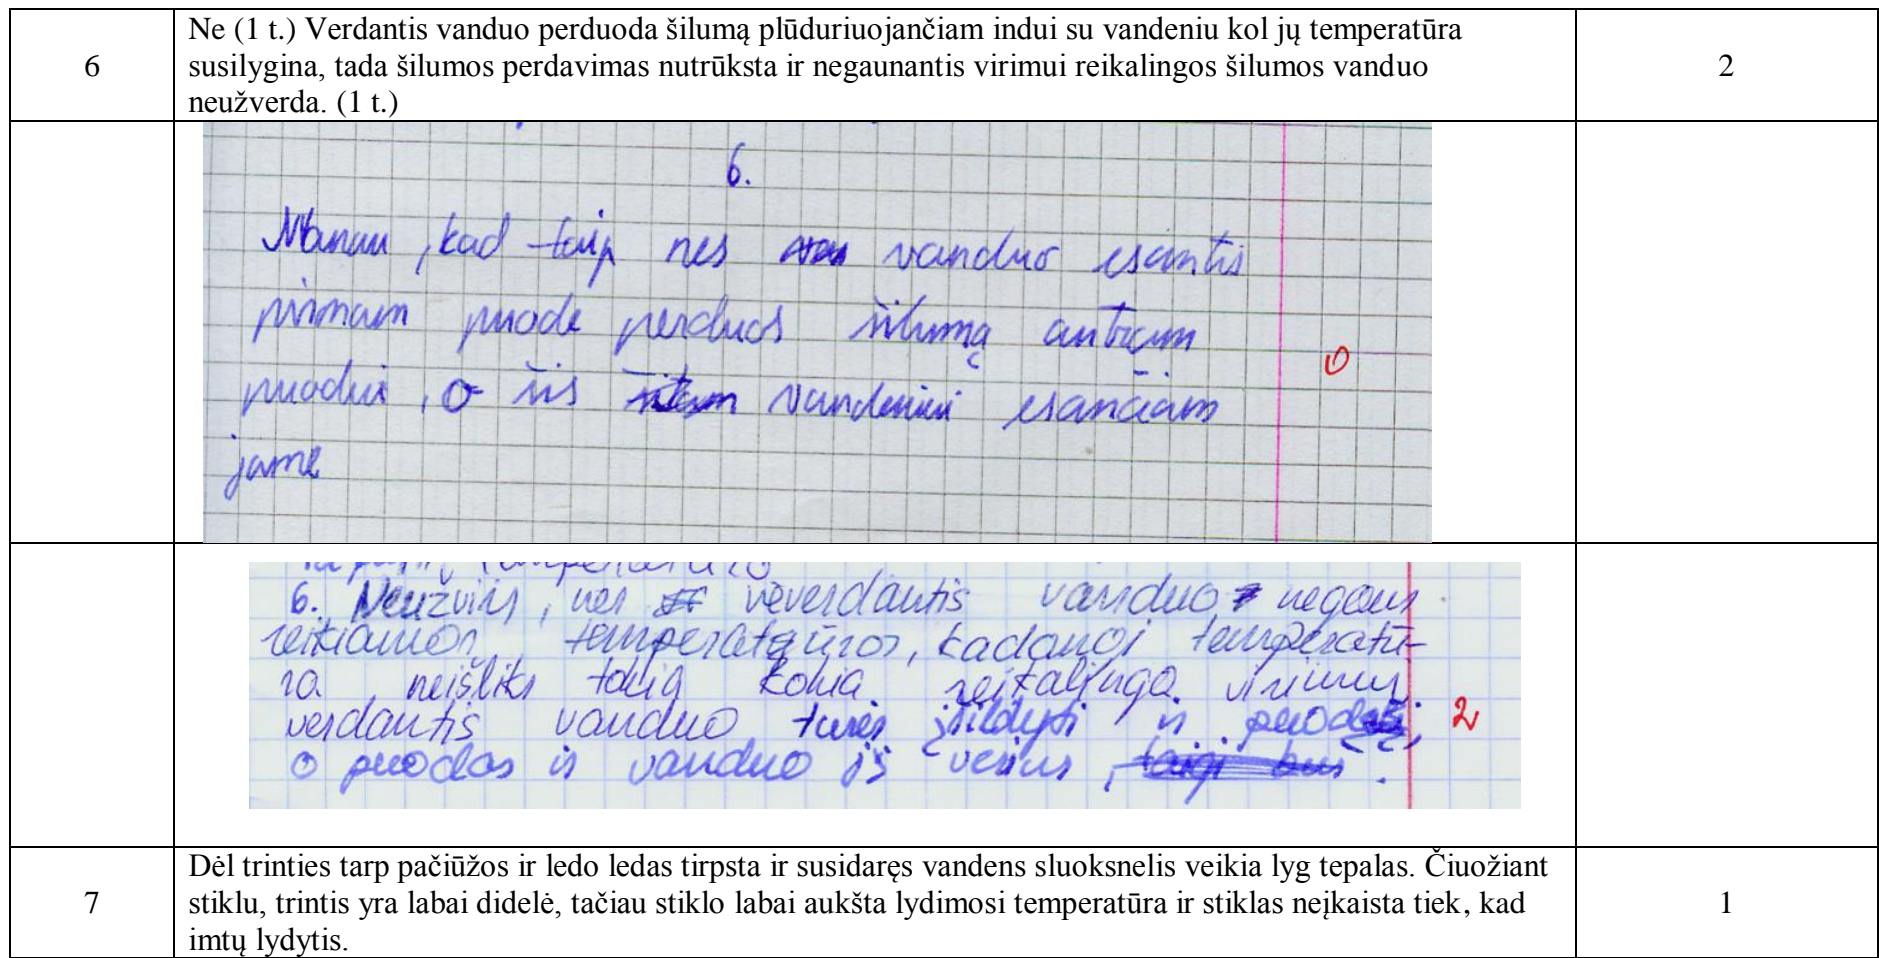 Ne (1 t.) Verdantis vanduo perduoda šilumą plūduriuojančiam indui su vandeniu kol jų temperatūra
6
susilygina, tada šilumos perdavimas nutrūksta ir negaunantis virimui reikalingos šilumos vanduo
2
neužverda. (1 t.)
6.
Manau, kad taip nes vanduo esantis
pirmam puode perduos šilumą antram
0
puodui, o šis vandeniui esančiam
jame
6. Neužvirs, nes neverdantis vanduo negaus
reikiamos temperatūros, kadangi temperatū-
ra neišliks tokia kokia reikalinga virimui.
verdantis vanduo turės įšildyti ir puodą,
2
o puodas ir vanduo iš vėsius
Dėl trinties tarp pačiūžos ir ledo ledas tirpsta ir susidaręs vandens sluoksnelis veikia lyg tepalas. Čiuožiant
7
stiklu, trintis yra labai didelė, tačiau stiklo labai aukšta lydimosi temperatūra ir stiklas neįkaista tiek, kad
1
imtų lydytis.